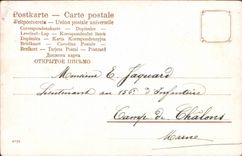 Postkarte - Carte postale
Weltpostverein - Union postale universelle
Correspondenzkarte - Dopisnice -
Levelező-Lap - Korespondenční lístek
Dopisnica - Karta Korespondencyjna
Briefkaart - Cartolina Postale -
Brefkort - Tarjeta Postal - Postkort
ОТКРЫТОЕ ПИСЬМО
Monsieur E. Jaquard
Lieutenant au 156 d'Infanterie
Camp de Châlons
Marne